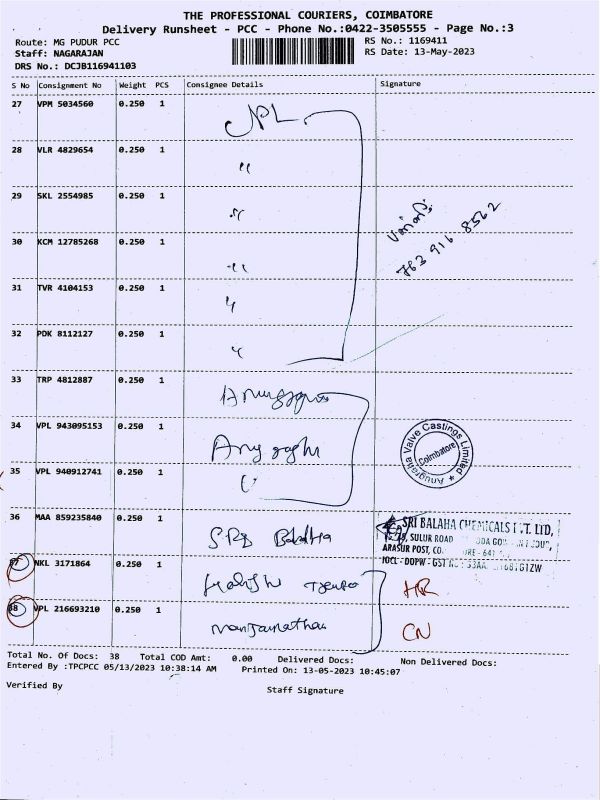 THE PROFESSIONAL COURIERS, COIMBATORE
Delivery Runsheet - PCC - Phone No.:0422-3505555 - Page No.:3
Route: MG PUDUR PCC
RS No.: 1169411
Staff: NAGARAJAN
RS Date: 13-May-2023
DRS No.: DCJB116941103
S No Consignment No Weight PCS Consignee Details Signature
27 VPM 5034560 0.250 1 JPL
28 VLR 4829654 0.250 1 "
29 SKL 2554985 0.250 1 "
30 KCM 12785268 0.250 1 "
763 916 8562
31 TVR 4104153 0.250 1 "
32 PDK 8112127 0.250 1 "
33 TRP 4812887 0.250 1
34 VPL 943095153 0.250 1
Anugraha Valve Castings Limited
Coimbatore
35 VPL 940912741 0.250 1 "
36 MAA 859235840 0.250 1 SRI Balaha
SRI BALAHA CHEMICALS PVT. LTD,
SULUR ROAD
ARASUR POST,
IOCL - DOPW - GST
37 NKL 3171864 0.250 1 HR
38 VPL 216693210 0.250 1 Manjunathan CN
Total No. Of Docs: 38 Total COD Amt: 0.00 Delivered Docs: Non Delivered Docs:
Entered By :TPCPCC 05/13/2023 10:38:14 AM Printed On: 13-05-2023 10:45:07
Verified By
Staff Signature